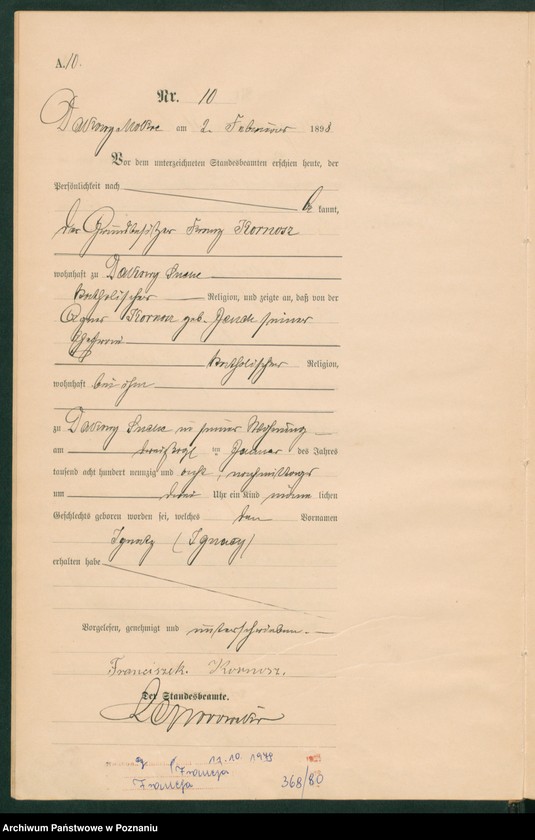 A. 10.
Nr. 10
Dakowy Mokre am 2. Februar 1898.
Vor dem unterzeichneten Standesbeamten erschien heute, der
Persönlichkeit nach
be kannt,
der Grundbesitzer Franz Kornosz
wohnhaft zu Dakowy Suche
katholischer Religion, und zeigte an, daß von der
Agnes Kornosz geb. Janek seiner
Ehefrau
katholischer Religion,
wohnhaft bei ihm
zu Dakowy Suche in seiner Wohnung
am dreißigsten Januar des Jahres
tausend acht hundert neunzig und acht nachmittags
um drei Uhr ein Kind männ lichen
Geschlechts geboren worden sei, welches den Vornamen
Ignatz (Ignacy)
erhalten habe
Vorgelesen, genehmigt und unterschrieben.
Franciszek Kornosz.
Der Standesbeamte.
12.10 1979
Francja
Francja
368/80
Archiwum Państwowe w Poznaniu